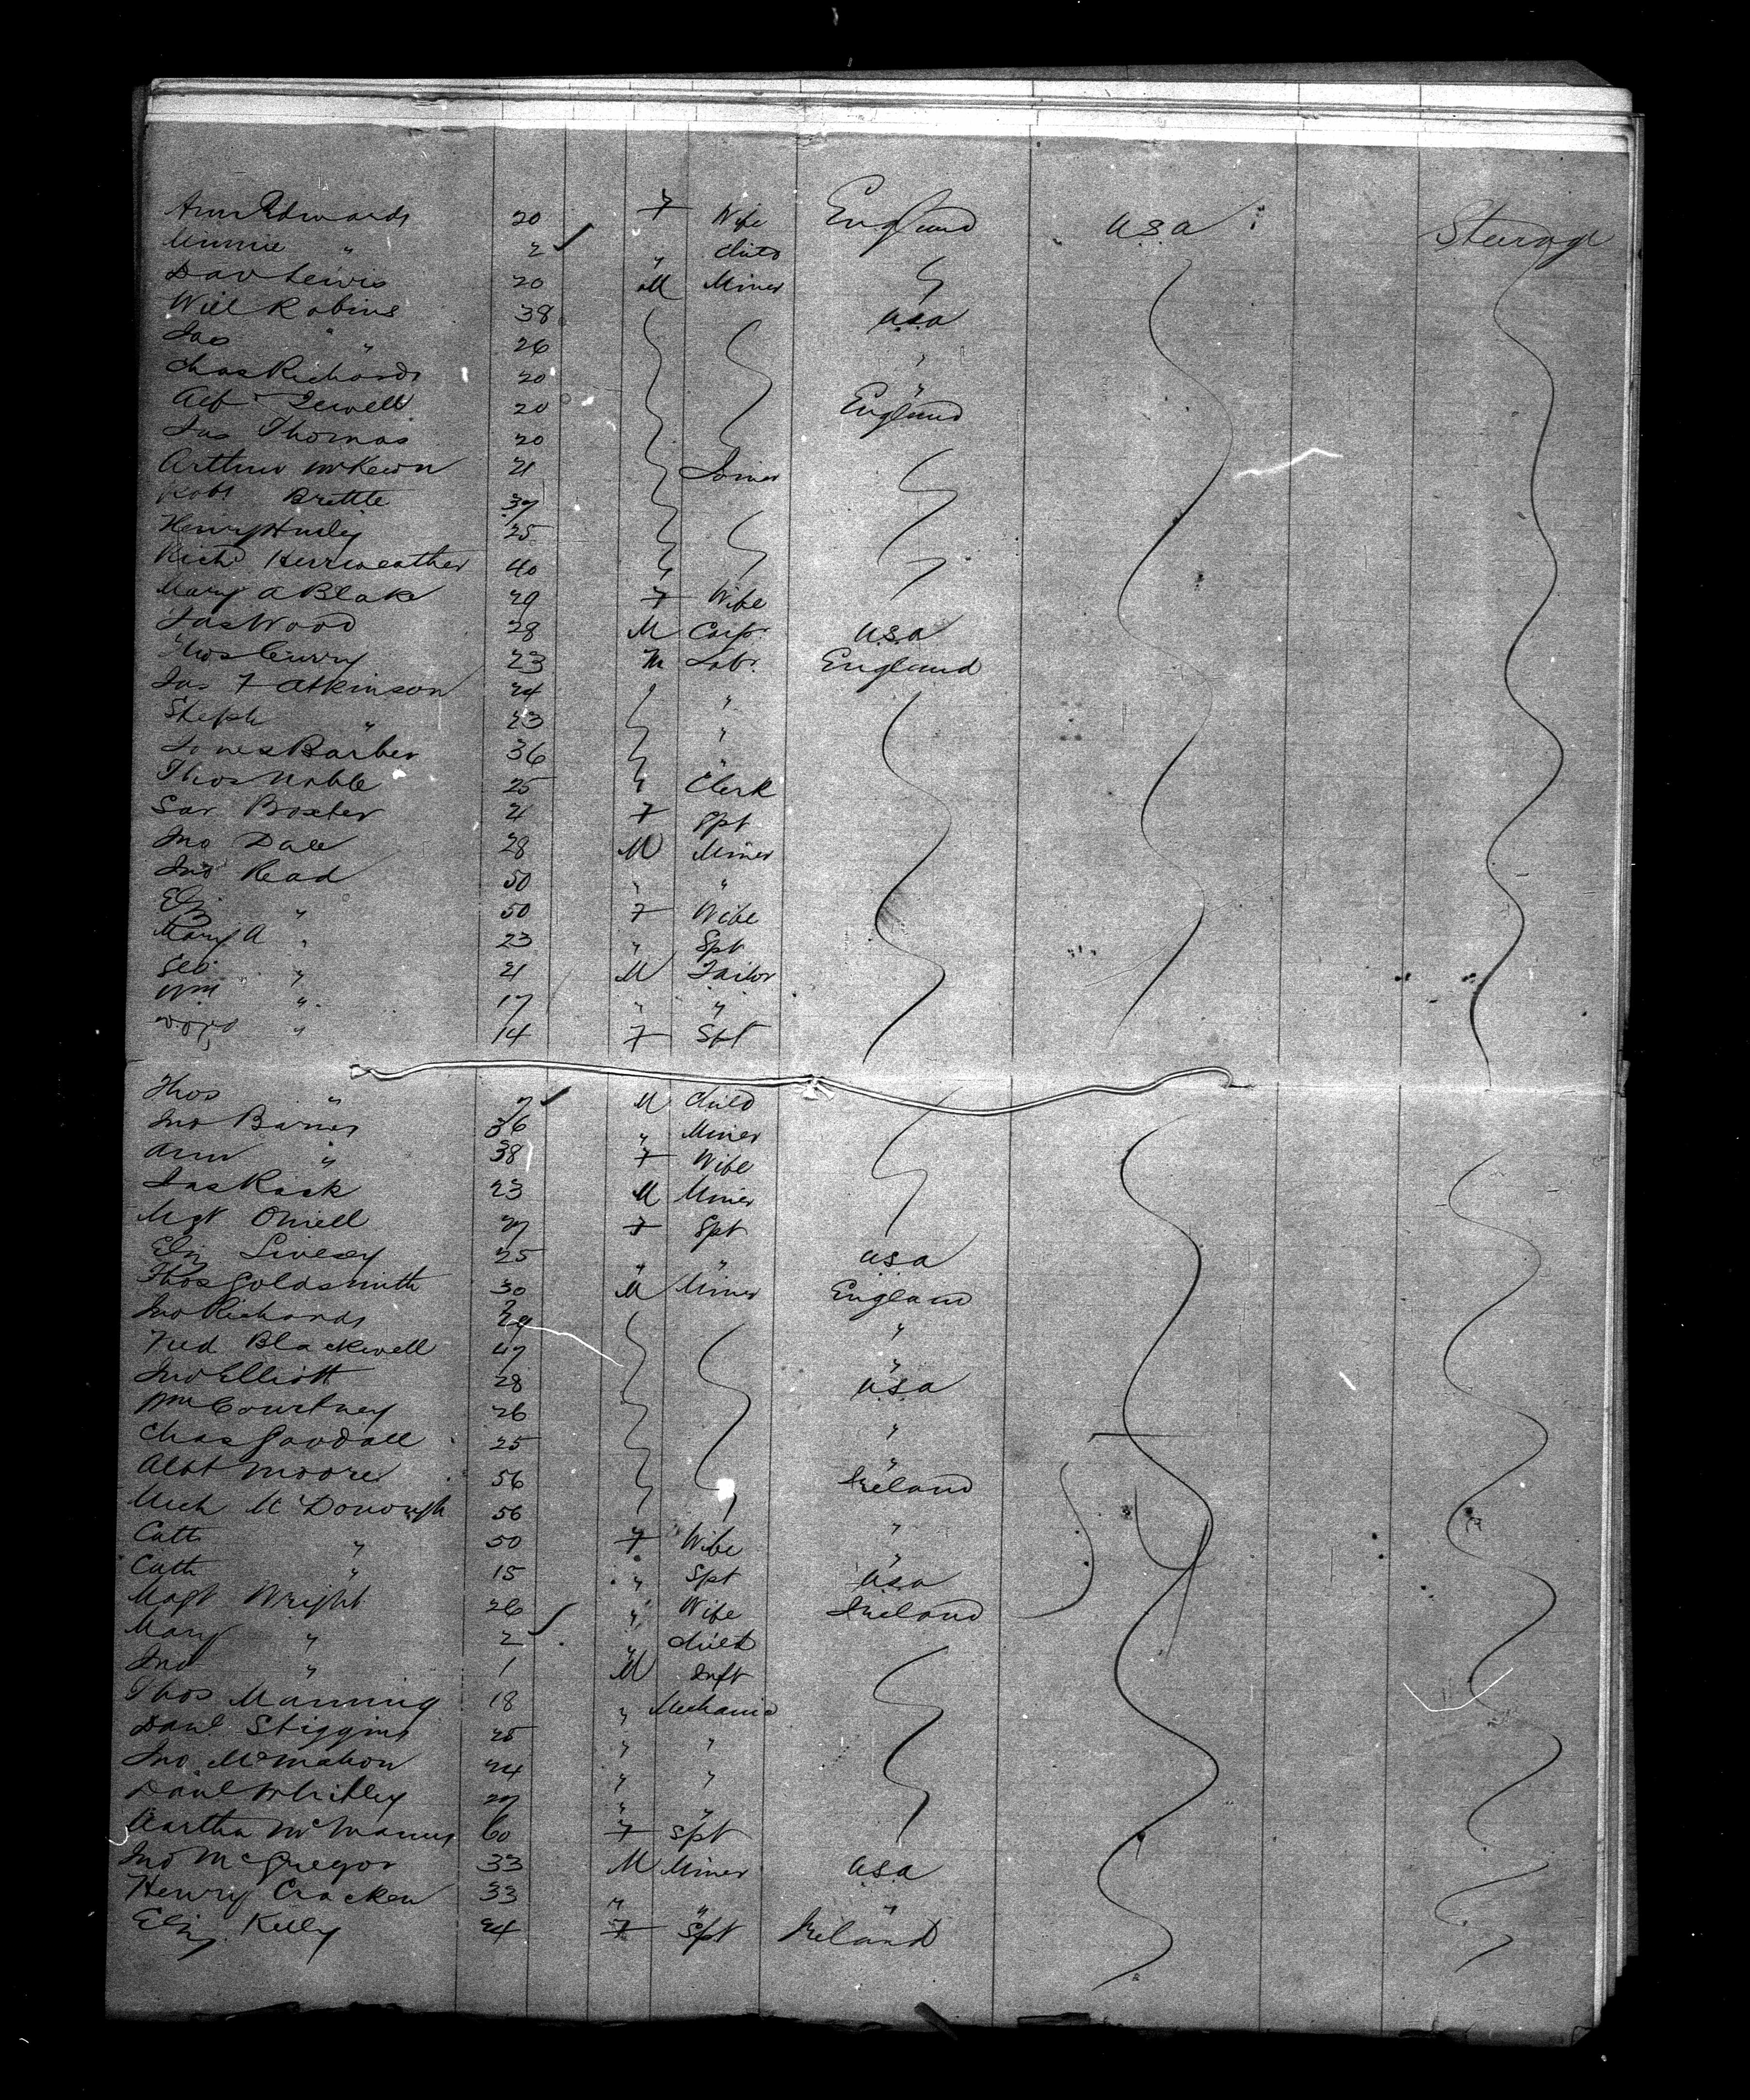 Ann Edwards 20 F Wife England U.S.A Steerage
Minnie " 2 ✓ " Child
Dav Lewis 20 M Miner
Will Robins 38 U.S.A
Jas " 26 "
Chas Richards 20 "
Alf Jewell 20 England
Jas Thomas 20
Arthur McKeown 21 Joiner
Robt Brettle 37
Henry Hurley 25
Richd 40
Mary A Blake 29 F Wife
Jas Wood 28 M Carp. U.S.A
Thos Curry 23 M Labr. England
Jas F Atkinson 24 "
Steph " 23 "
Jones Barber 36 "
Thos Noble 25 " Clerk
Sar Boxter 21 F Spt
Jno Dale 28 M Miner
Jno Read 50 " "
Eliz " 50 F Wife
Mary A " 23 " Spt
Geo " 21 M Tailor
Wm " 17 " "
" 14 F Spt
Thos " 7 ✓ M Child
Jno Barnes 36 " Miner
Ann " 38 F Wife
Jas Rask 23 M Miner
Mgt Oneill 27 F Spt
Eliz Livesey 25 " " U.S.A
Thos Goldsmith 30 M Miner England
Jno Richards 29 "
Fred Blackwell 47 "
Jno Elliott 28 U.S.A
Wm Courtney 26 "
Chas Goodall 25 "
Albt Moore 56 Ireland
Mich McDonough 56 "
Cath " 50 F Wife "
Cath " 15 " Spt U.S.A
Magt Wright 26 " Wife Ireland
Mary " 2 ✓ " Child
Jno " 1 M Inft
Thos Manning 18 " Mechanic
Danl Stiggins 25 " "
Jno McMahon 24 " "
Danl Whitley 27 " "
Martha McManus 60 F Spt
Jno McGregor 33 M Miner U.S.A
Henry Cracken 33 " " "
Eliz. Kelly 24 F Spt Ireland